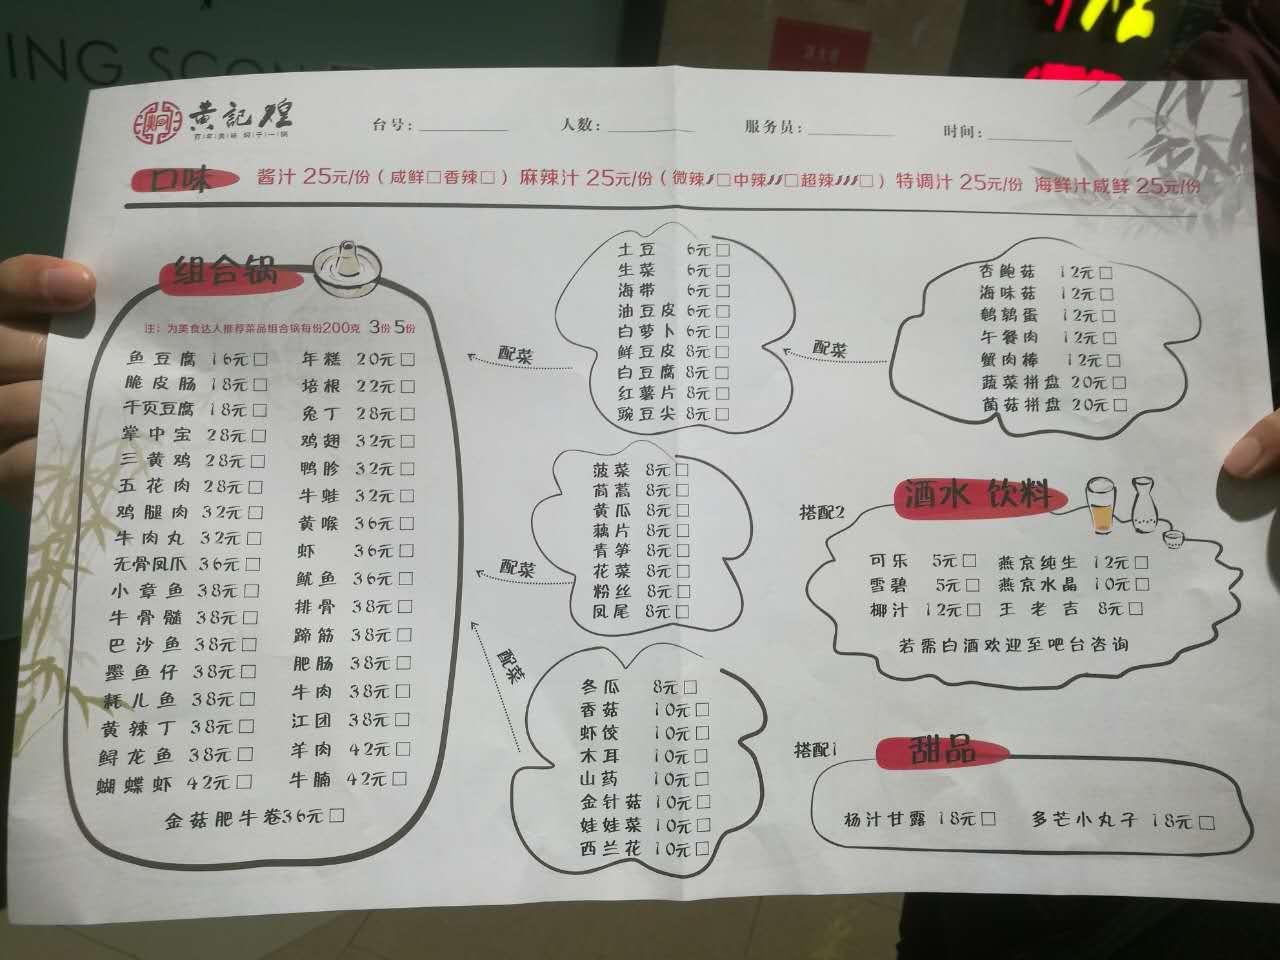 ING SCON
黄記煌
百年美味 焖于一锅
台号:
人数:
服务员:
时间:
口味
酱汁 25元/份（咸鲜□香辣□）麻辣汁 25元/份（微辣□中辣□超辣□）特调汁 25元/份 海鲜汁咸鲜 25元/份
组合锅
注: 为美食达人推荐菜品组合锅每份200克 3份 5份
鱼豆腐 16元□
脆皮肠 18元□
千页豆腐 18元□
掌中宝 28元□
三黄鸡 28元□
五花肉 28元□
鸡腿肉 32元□
牛肉丸 32元□
无骨凤爪 36元□
小章鱼 38元□
牛骨髓 38元□
巴沙鱼 38元□
墨鱼仔 38元□
耗儿鱼 38元□
黄辣丁 38元□
鲟龙鱼 38元□
蝴蝶虾 42元□
年糕 20元□
培根 22元□
兔丁 28元□
鸡翅 32元□
鸭胗 32元□
牛蛙 32元□
黄喉 36元□
虾 36元□
鱿鱼 36元□
排骨 38元□
蹄筋 38元□
肥肠 38元□
牛肉 38元□
江团 38元□
羊肉 42元□
牛腩 42元□
金菇肥牛卷36元□
配菜
土豆 6元□
生菜 6元□
海带 6元□
油豆皮 6元□
白萝卜 6元□
鲜豆皮 8元□
白豆腐 8元□
红薯片 8元□
豌豆尖 8元□
配菜
杏鲍菇 12元□
海味菇 12元□
鹌鹑蛋 12元□
午餐肉 12元□
蟹肉棒 12元□
蔬菜拼盘 20元□
菌菇拼盘 20元□
配菜
菠菜 8元□
茼蒿 8元□
黄瓜 8元□
藕片 8元□
青笋 8元□
花菜 8元□
粉丝 8元□
凤尾 8元□
配菜
冬瓜 8元□
香菇 10元□
虾饺 10元□
木耳 10元□
山药 10元□
金针菇 10元□
娃娃菜 10元□
西兰花 10元□
搭配2
酒水 饮料
可乐 5元□ 燕京纯生 12元□
雪碧 5元□ 燕京水晶 10元□
椰汁 12元□ 王老吉 8元□
若需白酒欢迎至吧台咨询
搭配1
甜品
杨汁甘露 18元□ 多芒小丸子 18元□